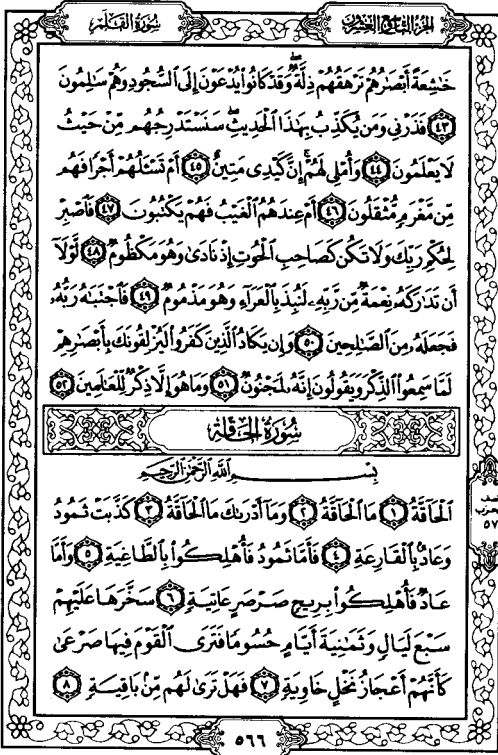 الجزء التاسع والعشرون
سُورَةُ القَلَمِ
خَٰشِعَةً أَبْصَٰرُهُمْ تَرْهَقُهُمْ ذِلَّةٌ ۖ وَقَدْ كَانُوا۟ يُدْعَوْنَ إِلَى ٱلسُّجُودِ وَهُمْ سَٰلِمُونَ
٤٣ فَذَرْنِى وَمَن يُكَذِّبُ بِهَٰذَا ٱلْحَدِيثِ ۖ سَنَسْتَدْرِجُهُم مِّنْ حَيْثُ
لَا يَعْلَمُونَ ٤٤ وَأُمْلِى لَهُمْ ۚ إِنَّ كَيْدِى مَتِينٌ ٤٥ أَمْ تَسْـَٔلُهُمْ أَجْرًا فَهُم
مِّن مَّغْرَمٍ مُّثْقَلُونَ ٤٦ أَمْ عِندَهُمُ ٱلْغَيْبُ فَهُمْ يَكْتُبُونَ ٤٧ فَٱصْبِرْ
لِحُكْمِ رَبِّكَ وَلَا تَكُن كَصَاحِبِ ٱلْحُوتِ إِذْ نَادَىٰ وَهُوَ مَكْظُومٌ ٤٨ لَّوْلَآ
أَن تَدَٰرَكَهُۥ نِعْمَةٌ مِّن رَّبِّهِۦ لَنُبِذَ بِٱلْعَرَآءِ وَهُوَ مَذْمُومٌ ٤٩ فَٱجْتَبَٰهُ رَبُّهُۥ
فَجَعَلَهُۥ مِنَ ٱلصَّٰلِحِينَ ٥٠ وَإِن يَكَادُ ٱلَّذِينَ كَفَرُوا۟ لَيُزْلِقُونَكَ بِأَبْصَٰرِهِمْ
لَمَّا سَمِعُوا۟ ٱلذِّكْرَ وَيَقُولُونَ إِنَّهُۥ لَمَجْنُونٌ ٥١ وَمَا هُوَ إِلَّا ذِكْرٌ لِّلْعَٰلَمِينَ ٥٢
سُورَةُ الحَاقَّةِ
بِسْمِ ٱللَّهِ ٱلرَّحْمَٰنِ ٱلرَّحِيمِ
ٱلْحَآقَّةُ ١ مَا ٱلْحَآقَّةُ ٢ وَمَآ أَدْرَىٰكَ مَا ٱلْحَآقَّةُ ٣ كَذَّبَتْ ثَمُودُ
وَعَادٌۢ بِٱلْقَارِعَةِ ٤ فَأَمَّا ثَمُودُ فَأُهْلِكُوا۟ بِٱلطَّاغِيَةِ ٥ وَأَمَّا
عَادٌ فَأُهْلِكُوا۟ بِرِيحٍ صَرْصَرٍ عَاتِيَةٍ ٦ سَخَّرَهَا عَلَيْهِمْ
سَبْعَ لَيَالٍ وَثَمَٰنِيَةَ أَيَّامٍ حُسُومًا فَتَرَى ٱلْقَوْمَ فِيهَا صَرْعَىٰ
كَأَنَّهُمْ أَعْجَازُ نَخْلٍ خَاوِيَةٍ ٧ فَهَلْ تَرَىٰ لَهُم مِّنۢ بَاقِيَةٍ ٨
٥٦٦